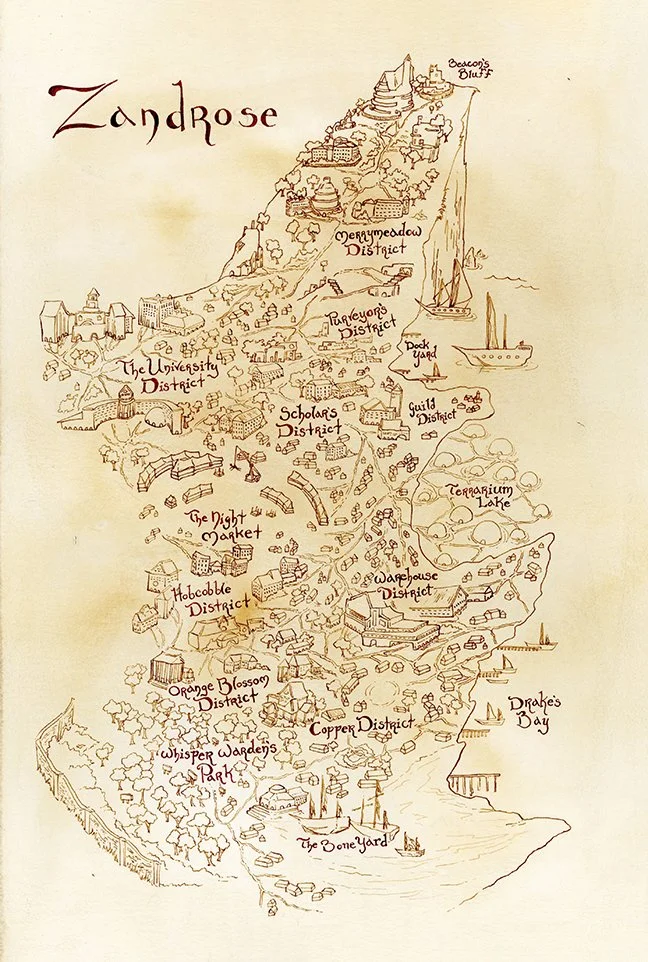 Beacon's
Bluff
Zandrose
Merrymeadow
District
Purveyor's
District
Dock
Yard
The University
District
Scholar's
District
Guild
District
Terrarium
Lake
The Night
Market
Warehouse
District
Hobcobble
District
Orange Blossom
District
Drake's
Bay
Copper District
Whisper Warden's
Park
The Boneyard